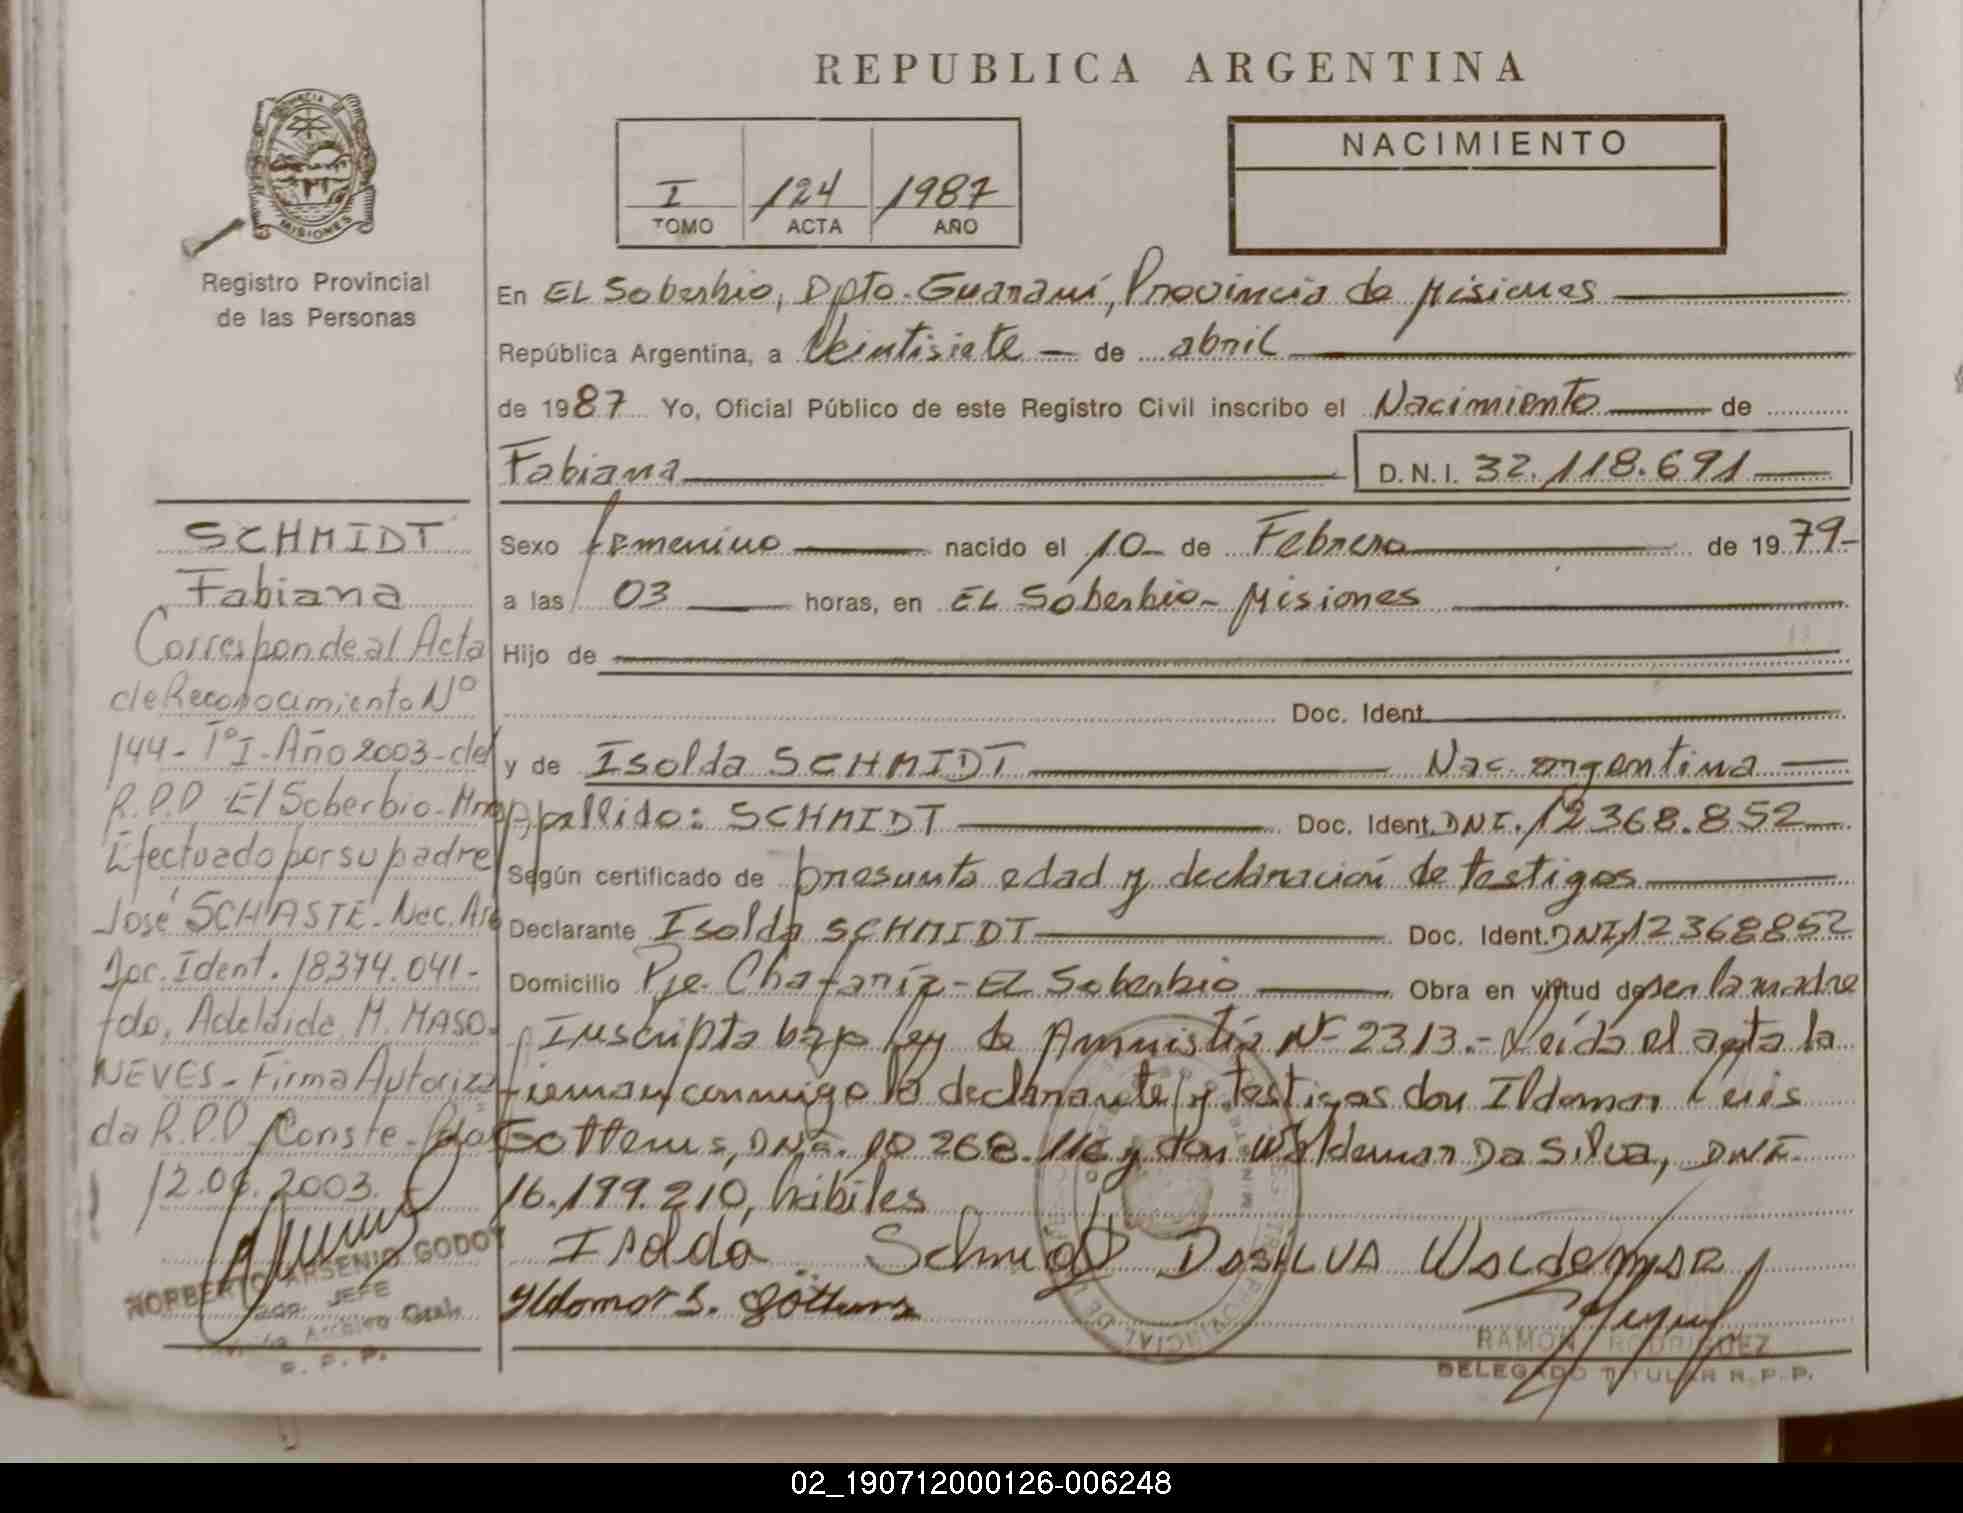 REPUBLICA ARGENTINA
NACIMIENTO
I 124 1987
TOMO ACTA AÑO
PROVINCIA DE MISIONES
Registro Provincial
de las Personas
En EL Soberbio, Dpto. Guaraní, Provincia de Misiones
República Argentina, a Veintisiete de abril
de 1987 Yo, Oficial Público de este Registro Civil inscribo el Nacimiento de
Fabiana D.N.I. 32.118.691
Sexo femenino nacido el 10 de Febrero de 1979
a las 03 horas, en EL Soberbio - Misiones
Hijo de
Doc. Ident.
y de Isolda SCHMIDT Nac. argentina
Appellido: SCHMIDT Doc. Ident. DNI. 12 368.852
Según certificado de presunta edad y declaración de testigos
Declarante Isolda SCHMIDT Doc. Ident. DNI 12 368852
Domicilio Pje. Chafaríz - EL Soberbio Obra en virtud de ser la madre
Inscripta bajo Ley de Amnistía Nº 2313.- Leída el acta la
firman conmigo la declarante y testigos don Ildomar Luis
Gottems, DNI. 10 268.116 y don Waldemar Da Silva, DNI.
16.199.210, hábiles
Isolda Schmidt DASILVA WALDEMAR
Ildomar L. Göttems
RAMON RODRIGUEZ
DELEGADO TITULAR R.P.P.
SCHMIDT
Fabiana
Corresponde al Acta
de Reconocimiento Nº
144 - Tº I - Año 2003 - del
R.P.P El Soberbio - Mnes
Efectuado por su padre
José SCHASTE - Nac. Arg
Doc. Ident. 18374.041 -
fdo. Adelaide M. MASO.
NEVES - Firma Autoriza
da R.P.P Conste - Pdas
12.09.2003.
NORBERTO ARSENIO GODOY
JEFE
Archivo Gral.
R. P. P.
02_190712000126-006248